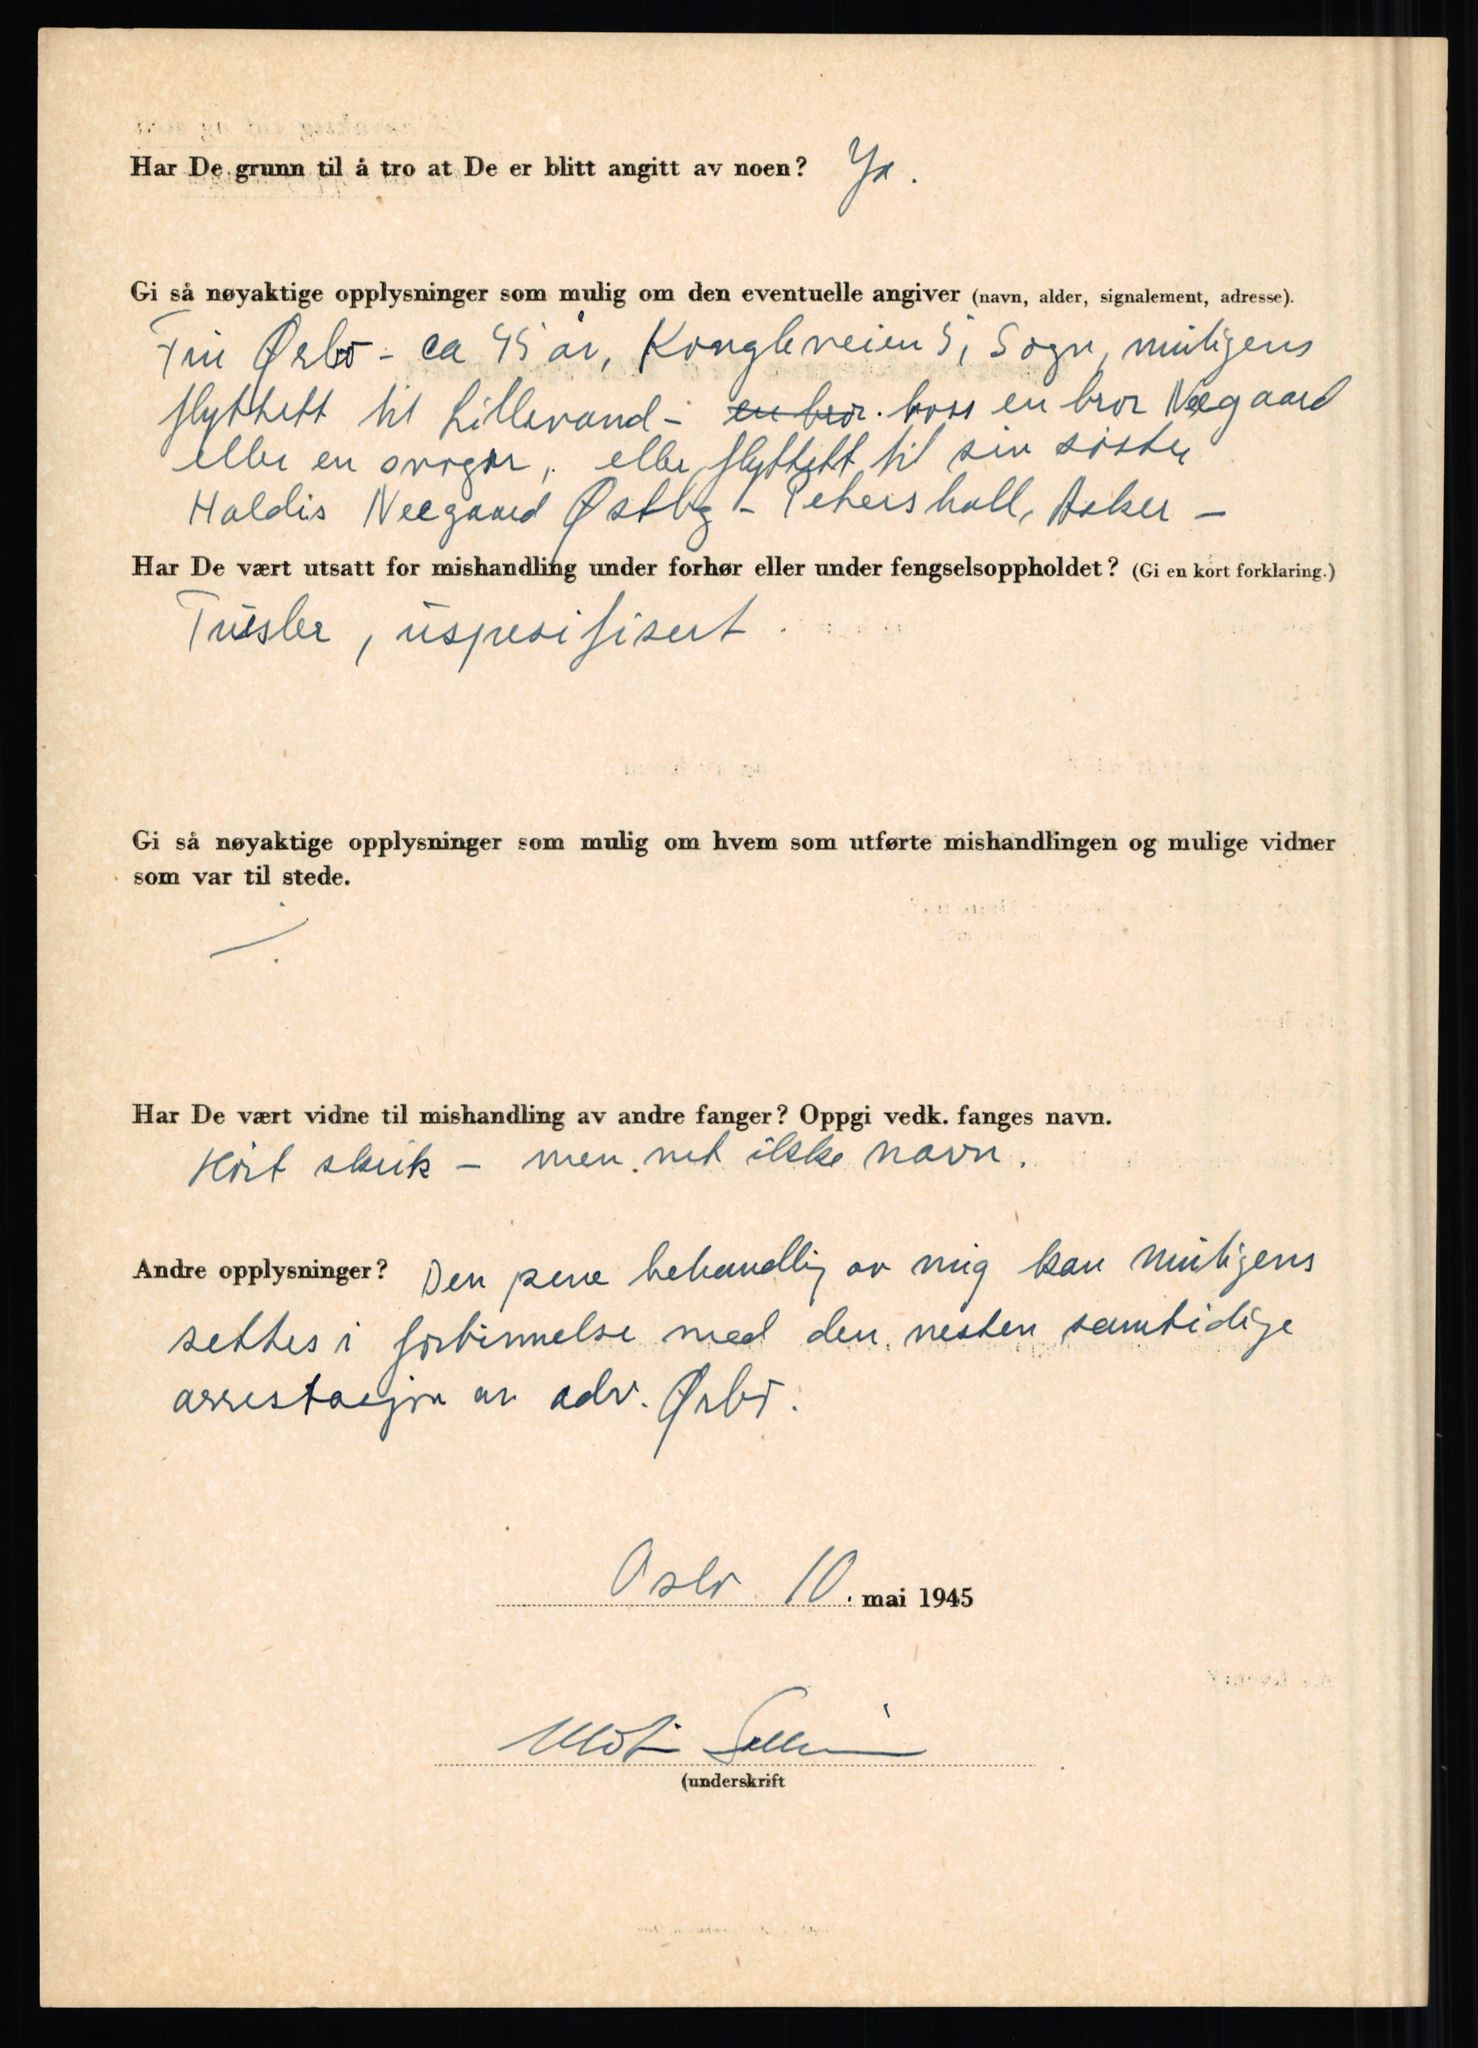 Har De grunn til å tro at De er blitt angitt av noen? Ja.
Gi så nøyaktige opplysninger som mulig om den eventuelle angiver (navn, alder, signalement, adresse).
Fru Ørbo - ca 45 år, Kongleveien 5, Sogn, muligens
flyttett til Lillesand - en bror. hoss en bror Neegaard
eller en svoger, eller flyttett til sin søster
Haldis Neegaard Østbg - Petershall, Asker -
Har De vært utsatt for mishandling under forhør eller under fengselsoppholdet? (Gi en kort forklaring.)
Trusler, uspesifisert.
Gi så nøyaktige opplysninger som mulig om hvem som utførte mishandlingen og mulige vidner
som var til stede.
Har De vært vidne til mishandling av andre fanger? Oppgi vedk. fanges navn.
Hørt skrik - men vet ikke navn.
Andre opplysninger? Den pene behandlig av mig kan muligens
settes i forbinnelse med den nesten samtidige
arrestasjon av adv. Ørbo.
Oslo 10. mai 1945
(underskrift